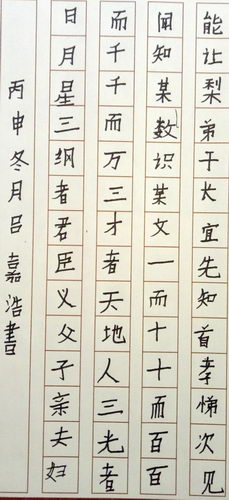 能让梨弟于长宜先知首孝悌次见
闻知某数识某文一而十十而百百
而千千而万三才者天地人三光者
日月星三纲者君臣义父子亲夫妇
丙申冬月吕嘉浩書